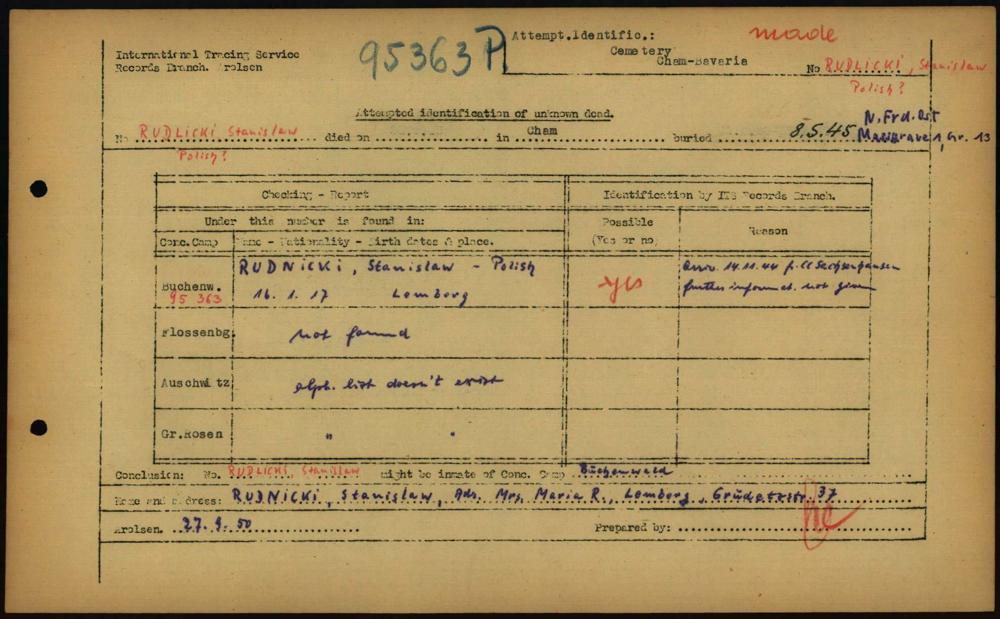 International Tracing Service
Records Branch. Arolsen
95363 P
Attempt.Identific.:
Cemetery
Cham-Bavaria
made
No RUDLICKI, Stanislaw
Polish?
Attempted identification of unknown dead.
No RUDLICKI Stanislaw died on in Cham buried 8.5.45 N.Frd.Ost
Polish?
Massgrave 1, Gr. 13
Checking - Report
Identification by ITS Records Branch.
Under this number is found in:
Possible
(Yes or no)
Reason
Conc.Camp
Name - Nationality - Birth dates & place.
Buchenw.
95 363
RUDNICKI, Stanislaw - Polish
16. 1. 17 Lemberg
yes
arriv. 14.11.44 f. CC Sachsenhausen
further informat. not given
Flossenbg.
not found
Auschwitz
alph. list doesn't exist
Gr.Rosen
" "
Conclusion: No. RUDLICKI, Stanislaw might be inmate of Conc. Camp Buchenwald
Home and address: RUDNICKI, Stanislaw, Adr. Mrs. Maria R., Lemberg, 37
Arolsen. 27.9.50
Prepared by: